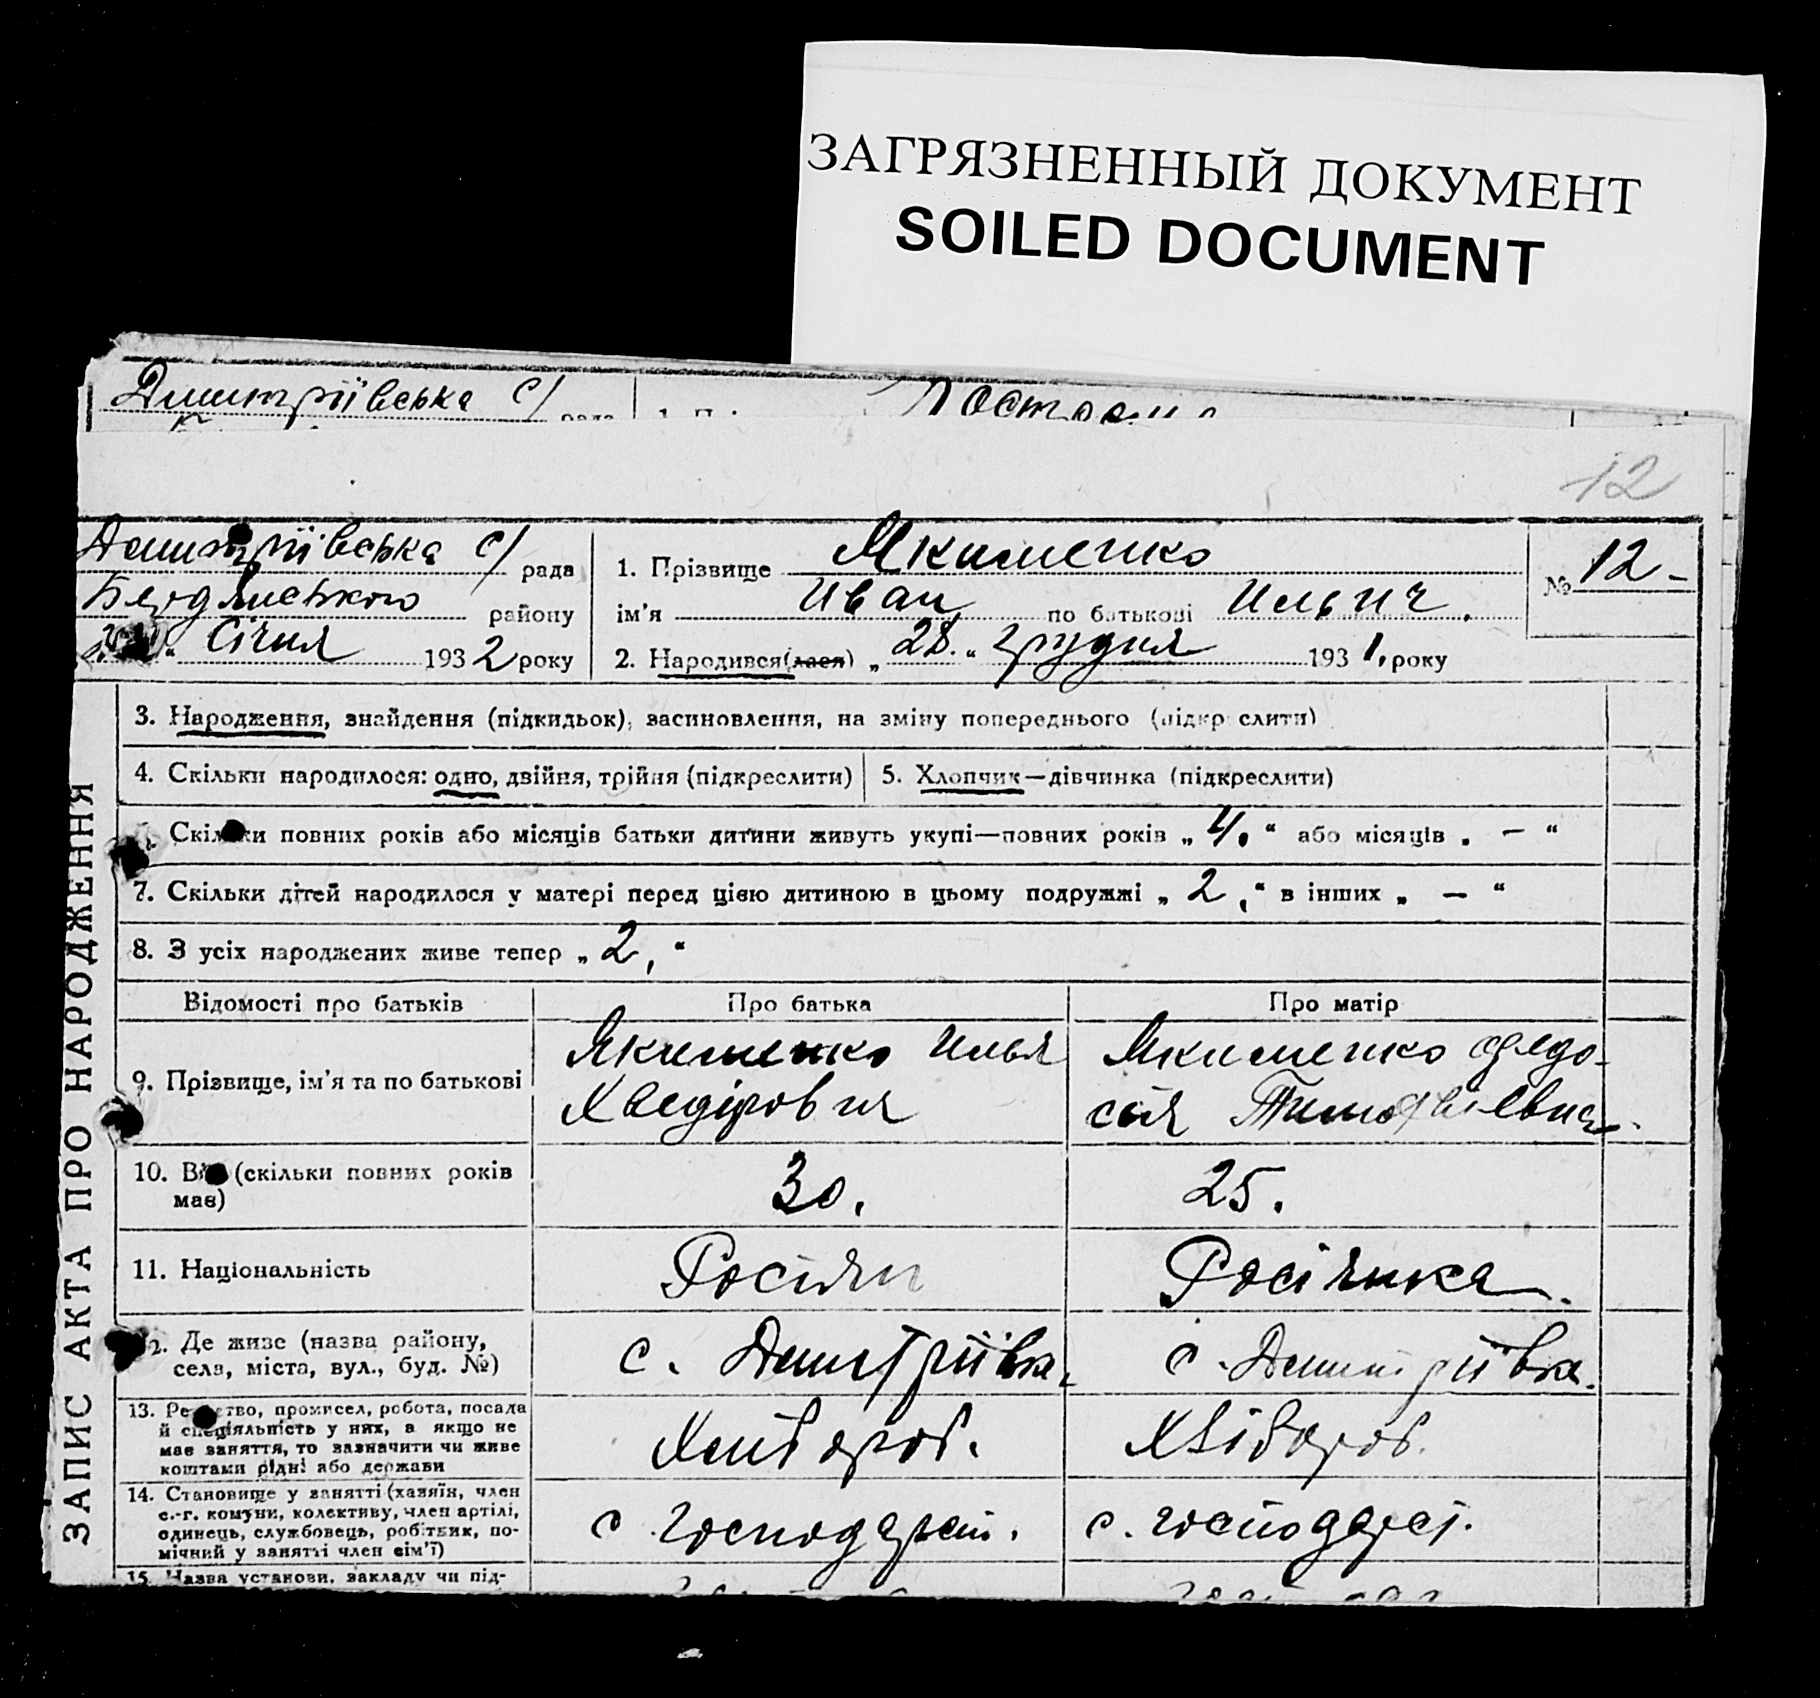 ЗАГРЯЗНЕННЫЙ ДОКУМЕНТ
SOILED DOCUMENT
Дмитріївська с/ рада
12
Дмитріївська с/ рада
Бердянського району
Січня 1932 року
1. Прізвище Якименко
ім'я Иван по батькові Ильич.
2. Народився(лася) „28.“ грудня 1931, року
№ 12-
ЗАПИС АКТА ПРО НАРОДЖЕННЯ
3. Народження, знайдення (підкидьок), засиновлення, на зміну попереднього (підкреслити)
4. Скільки народилося: одно, двійня, трійня (підкреслити)
5. Хлопчик—дівчинка (підкреслити)
Скільки повних років або місяців батьки дитини живуть укупі—повних років „4.“ або місяців „ – “
7. Скільки дітей народилося у матері перед цією дитиною в цьому подружжі „2,“ в інших „ – “
8. З усіх народжених живе тепер „2,“
Відомості про батьків
Про батька
Про матір
9. Прізвище, ім'я та по батькові
Якименко Илья
Хведірович
Якименко Федо-
сія Тимофіевна
10. Вік (скільки повних років
має)
30.
25.
11. Національність
Росіян
Росіянка.
12. Де живе (назва району,
села, міста, вул., буд. №)
с. Дмитріївка.
с. Дмитріївка.
13. Ремество, промисел, робота, посада
й спеціяльність у них, а якщо не
має заняття, то зазначити чи живе
коштами рідні або держави
Хлібороб.
Хлібороб.
14. Становище у занятті (хазяїн, член
с.-г. комуни, колективу, член артілі,
одинець, службовець, робітник, по-
мічний у занятті член сім'ї)
с. господарст.
с. господарст.
15. Назва установи, закладу чи під-